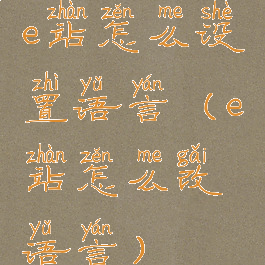 zhàn zěn me shè
e站怎么设
zhì yǔ yán
置语言（e
zhàn zěn me gǎi
站怎么改
yǔ yán
语言）